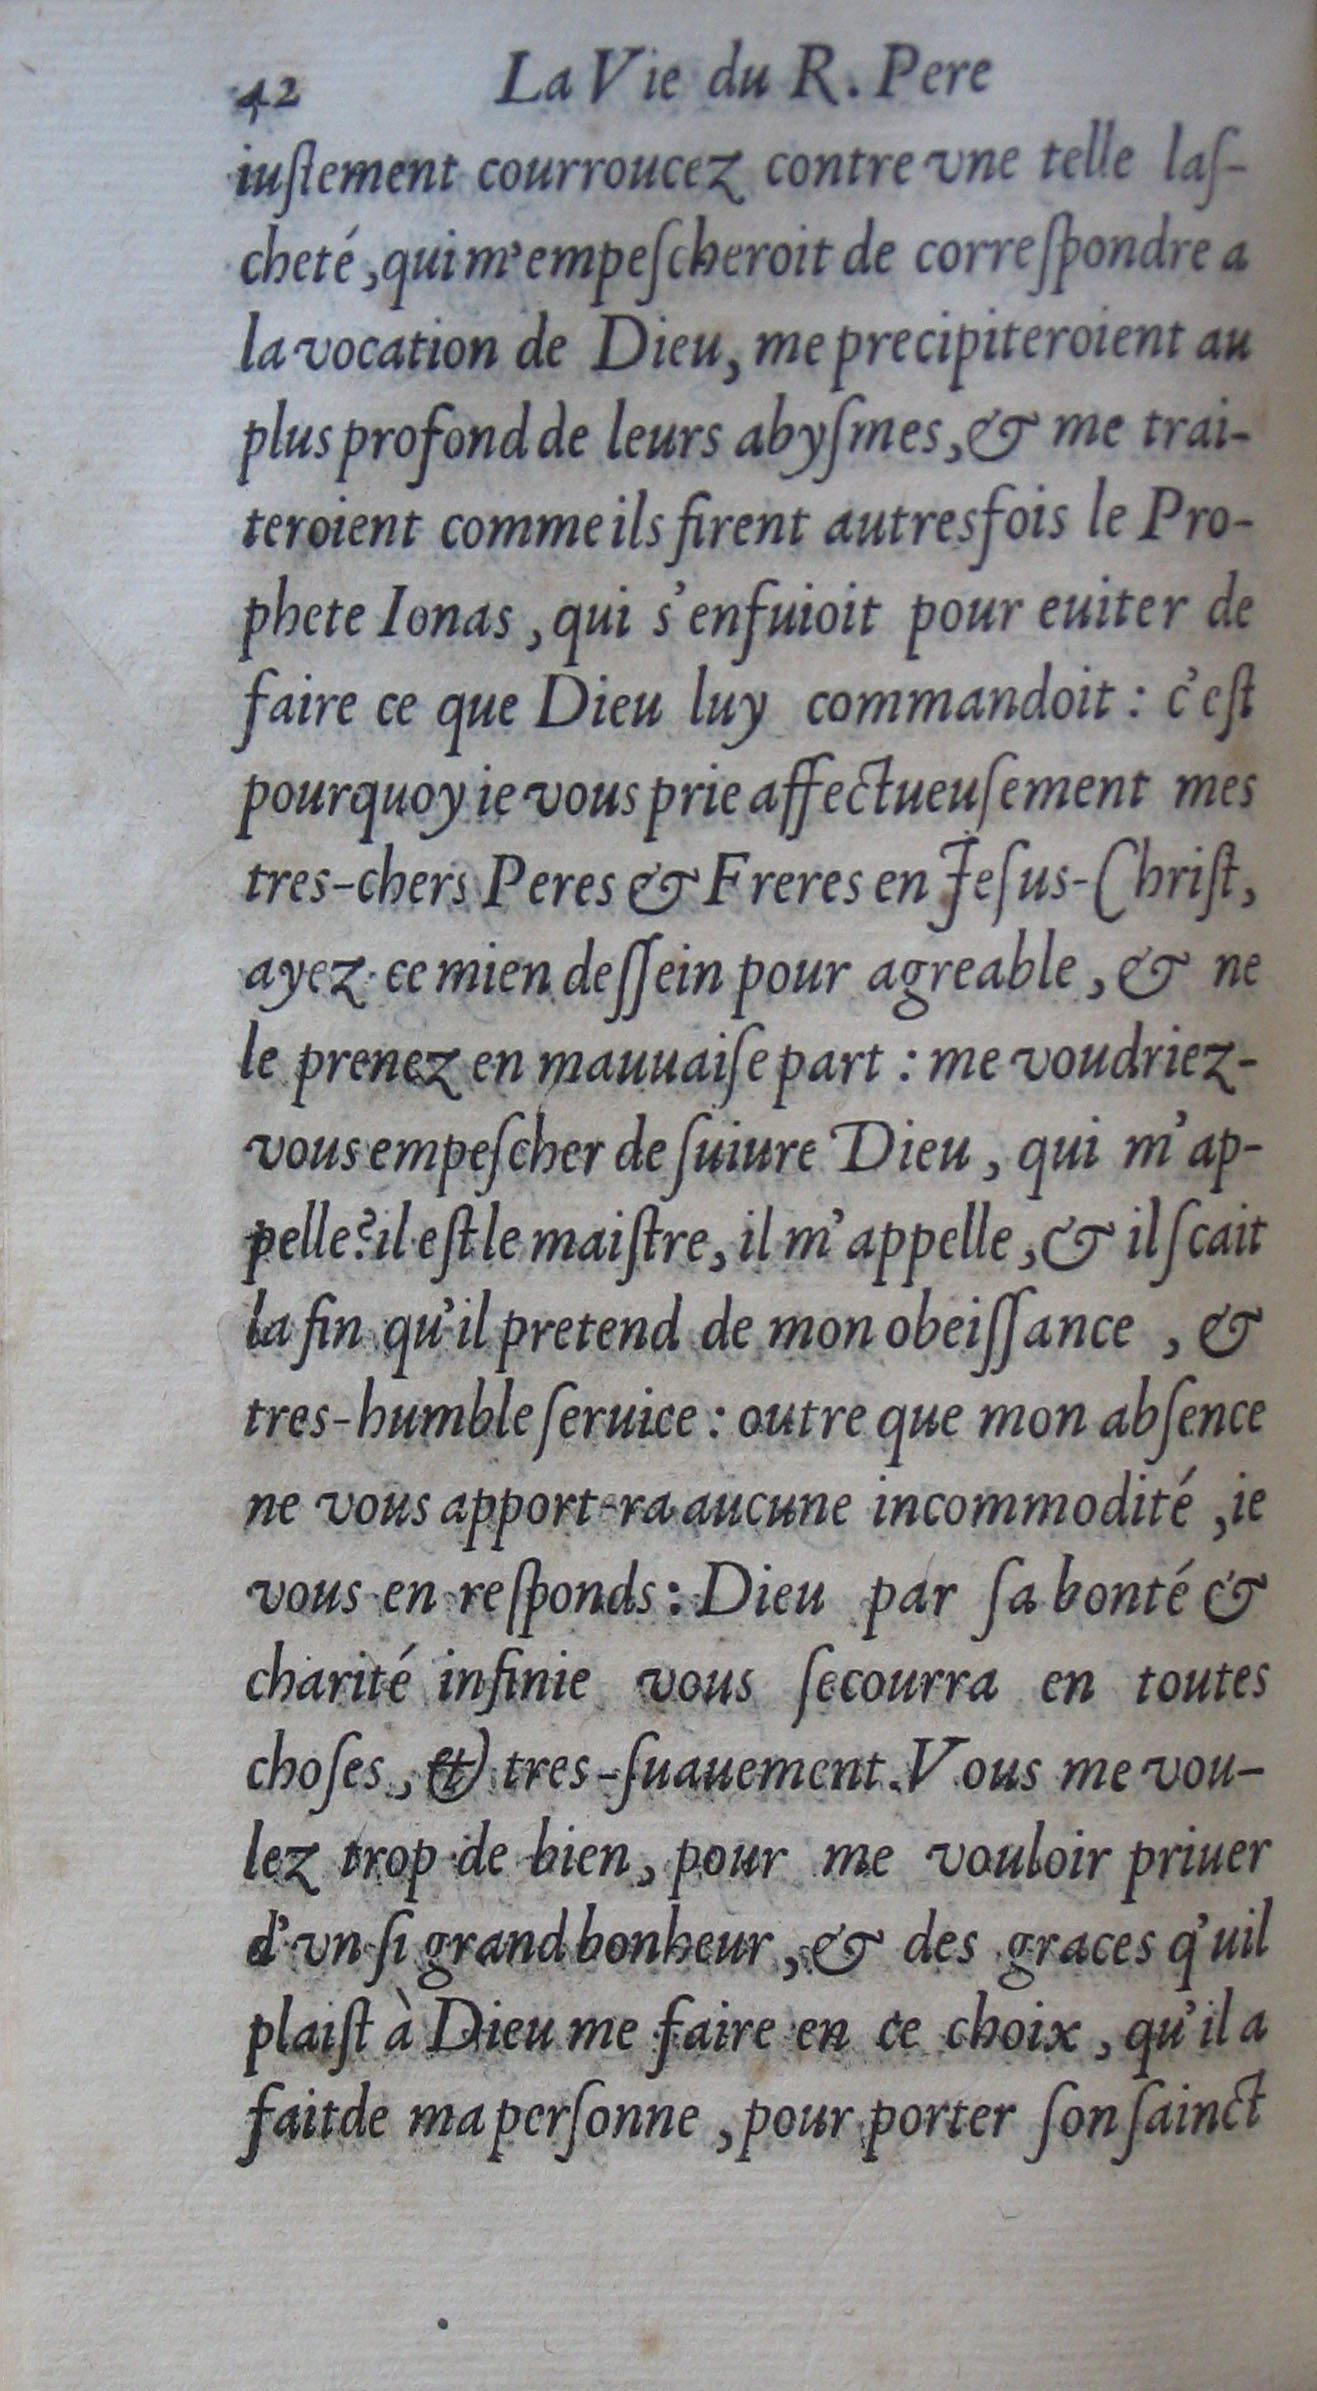 42 La Vie du R. Pere
iuſtement courroucez contre vne telle laſ-
cheté, qui m'empeſcheroit de correſpondre a
la vocation de Dieu, me precipiteroient au
plus profond de leurs abyſmes, & me trai-
teroient comme ils firent autresfois le Pro-
phete Ionas, qui s'enfuioit pour euiter de
faire ce que Dieu luy commandoit : c'eſt
pourquoy ie vous prie affectueuſement mes
tres-chers Peres & Freres en Jeſus-Chriſt,
ayez ce mien deſſein pour agreable, & ne
le prenez en mauuaiſe part : me voudriez-
vous empeſcher de ſuiure Dieu, qui m'ap-
pelle? il eſt le maiſtre, il m'appelle, & il ſcait
la fin qu'il pretend de mon obeiſſance, &
tres-humble ſeruice : outre que mon abſence
ne vous apport-ra aucune incommodité, ie
vous en reſponds : Dieu par ſa bonté &
charité infinie vous ſecourra en toutes
choſes, & tres-ſuauement. Vous me vou-
lez trop de bien, pour me vouloir priuer
d'vn ſi grand bonheur, & des graces q'uil
plaiſt à Dieu me faire en ce choix, qu'il a
fait de ma perſonne, pour porter ſon ſainct